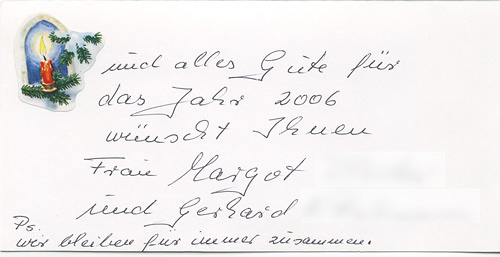 und alles Gute für
das Jahr 2006
wünscht Ihnen
Frau Margot
und Gerhard
Ps.
wir bleiben für immer zusammen.